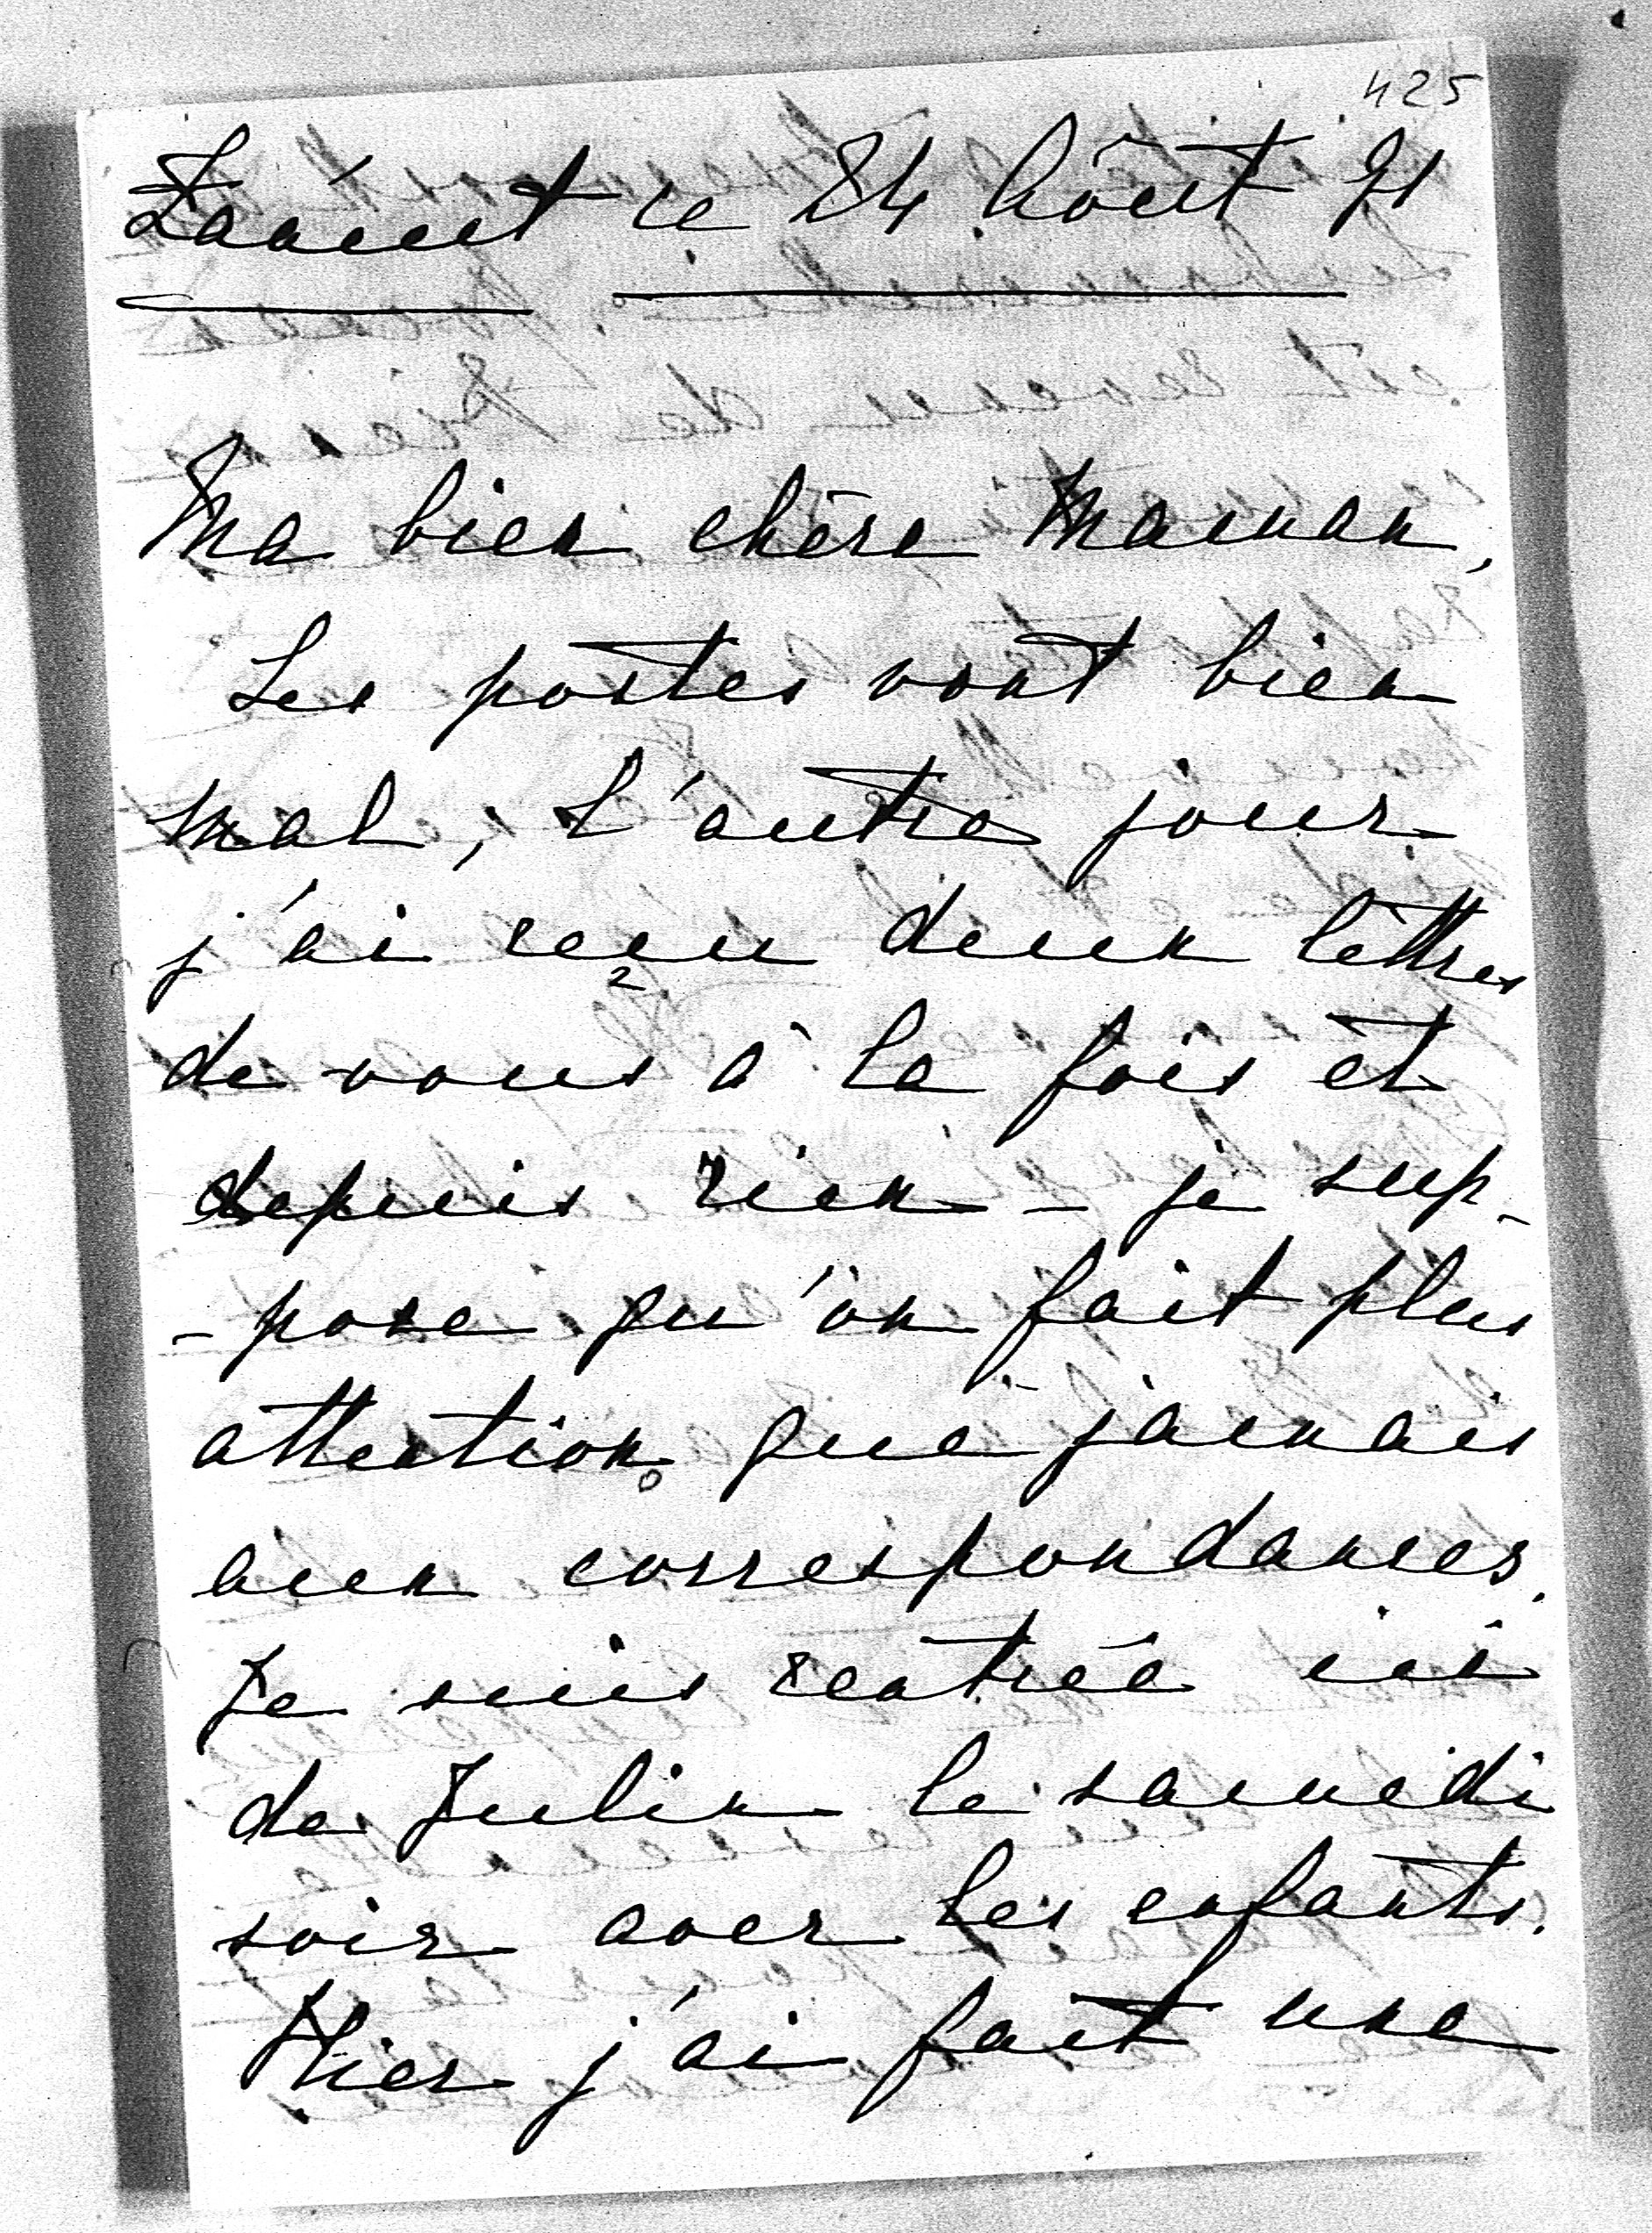 425
Łańcut le 24 Août 91
Ma bien chère Maman,
Les postes vont bien
mal, l'autre jour
j'ai reçu deux lettres
de vous à la fois et
depuis rien - je sup-
-pose qu'on fait plus
attention que jamais
aux correspondances.
Je suis rentrée ici
de Julin le samedi
soir avec les enfants.
Hier j'ai fait une